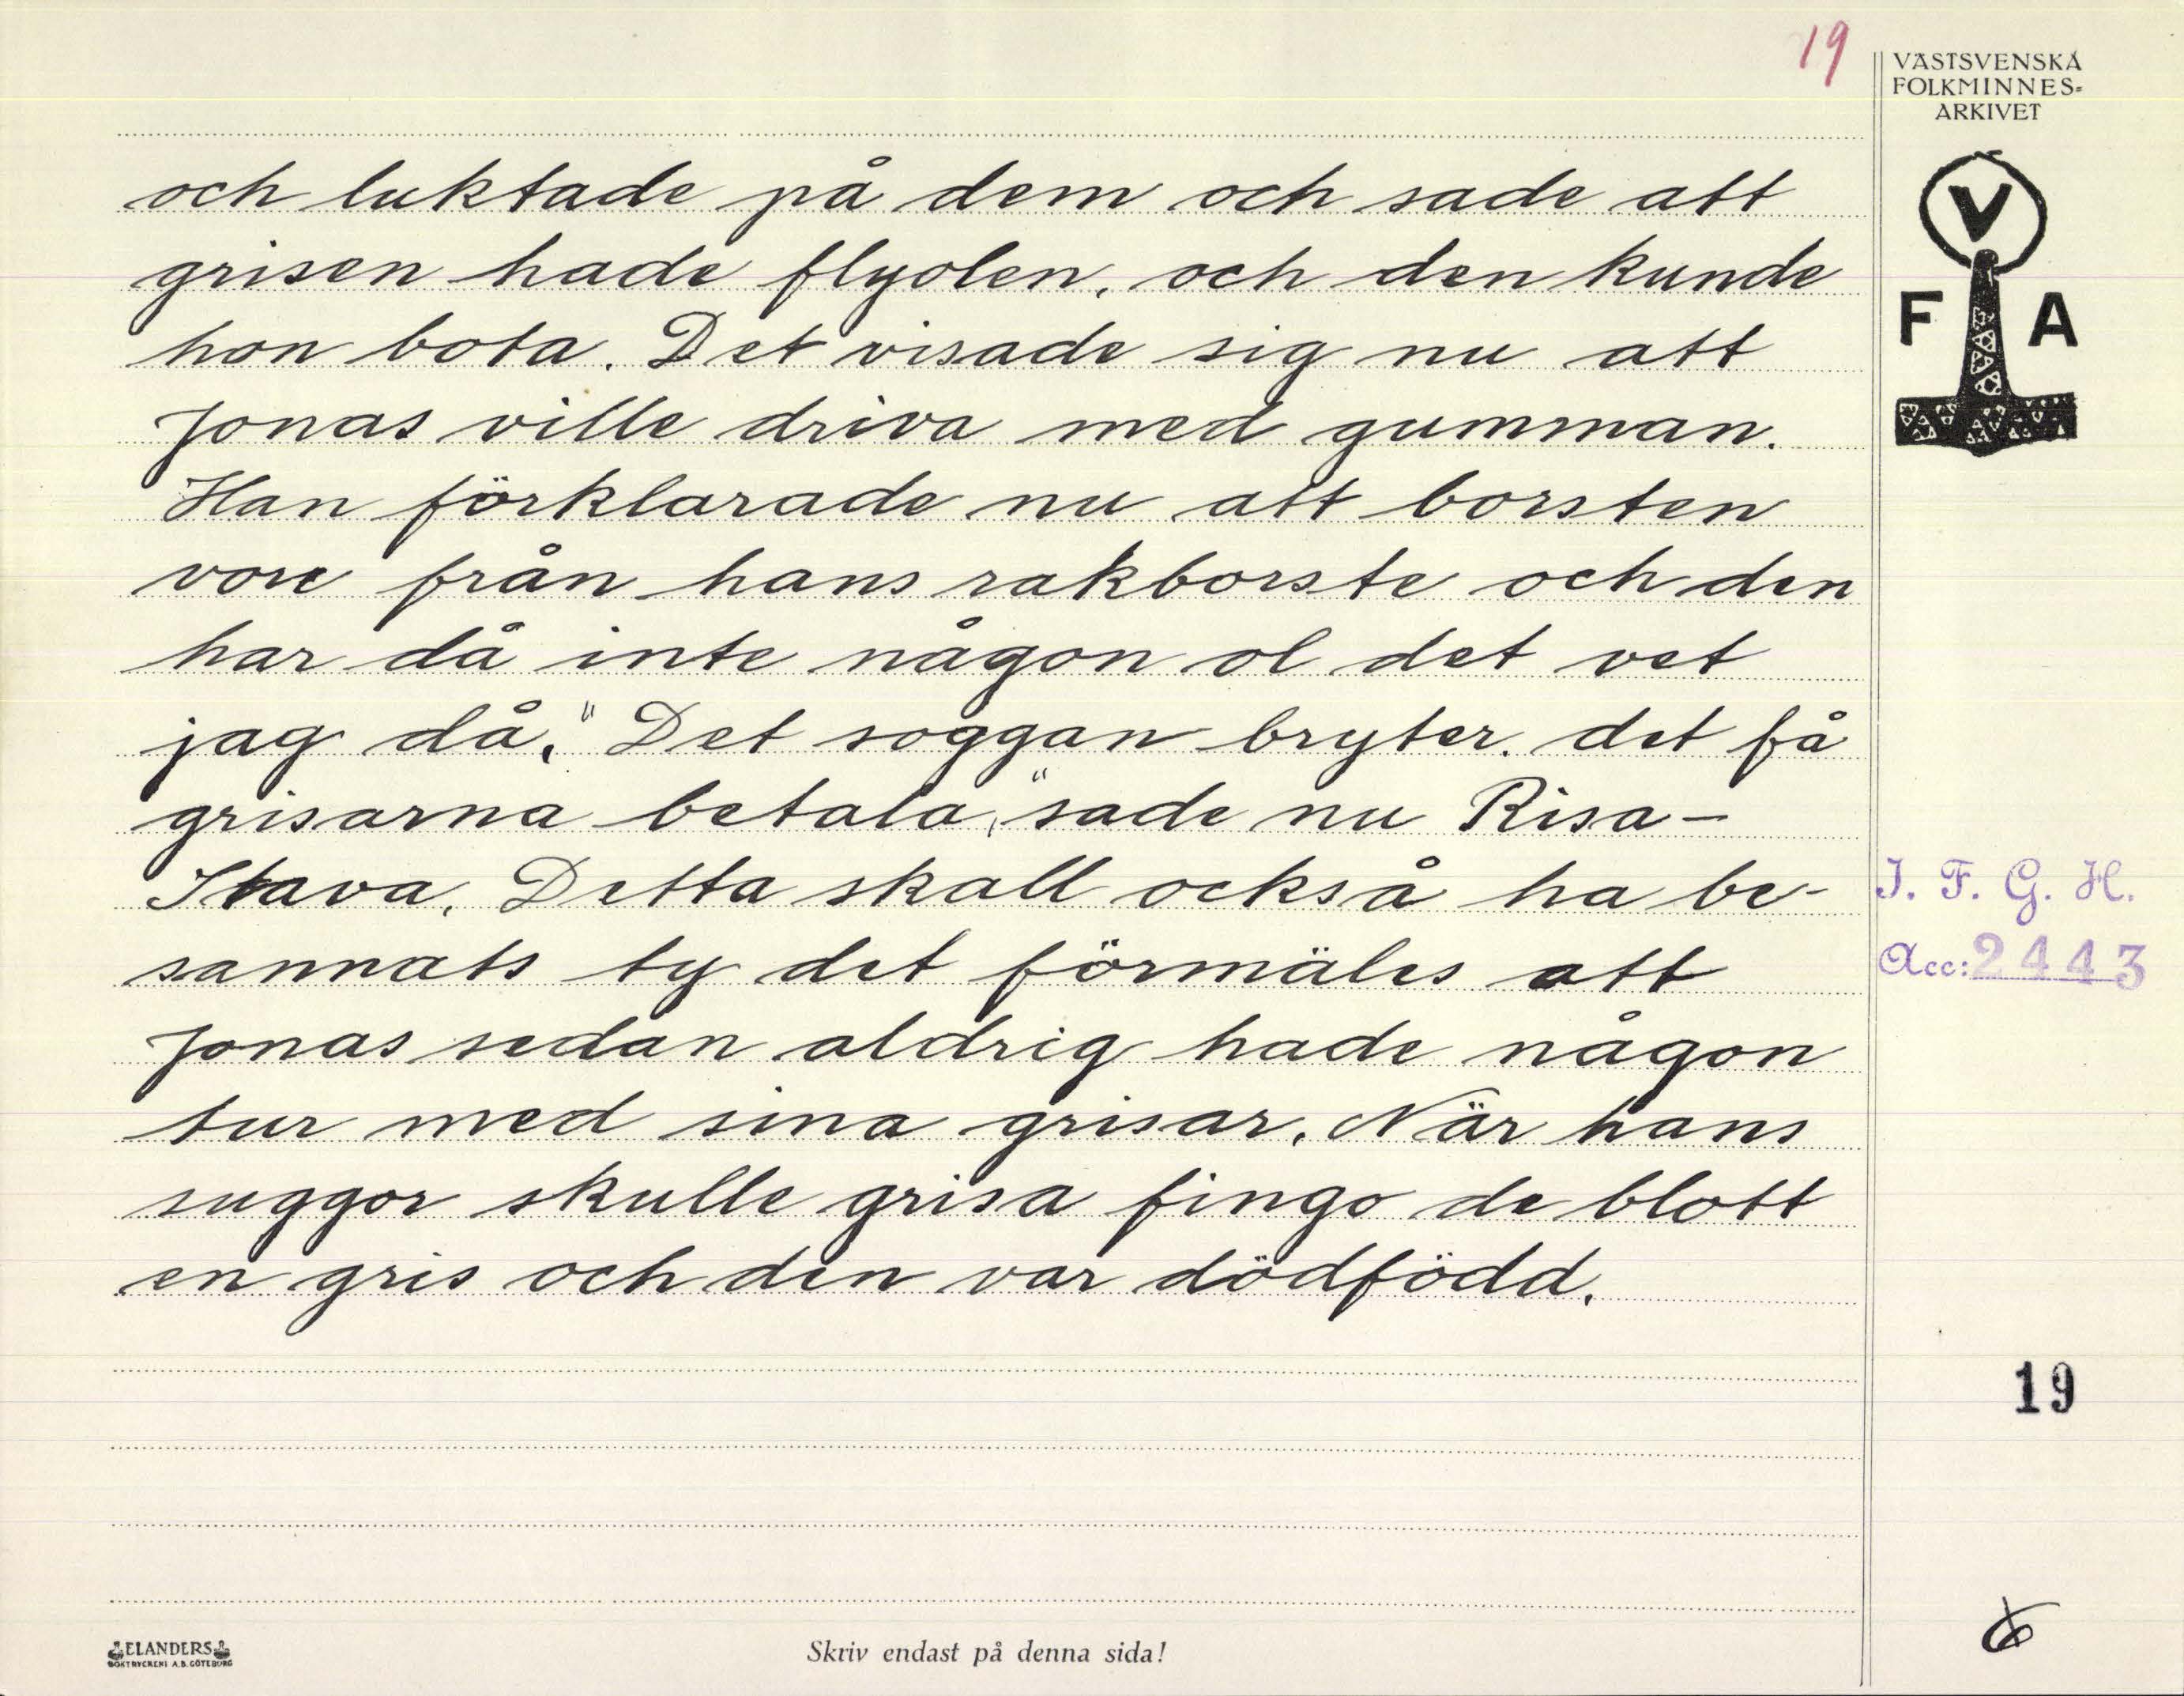 19
VÄSTSVENSKA
FOLKMINNES=
ARKIVET
V
F A
och luktade på dem och sade att
grisen hade flyolen, och den kunde
hon bota. Det visade sig nu att
Jonas ville driva med gumman.
Han förklarade nu att borsten
vore från hans rakborste och den
har då inte någon ol det vet
jag då." Det soggan bryter. det få
grisarna betala," sade nu Risa-
Stava. Detta skall också ha be-
sannats ty det förmäles att
Jonas sedan aldrig hade någon
tur med sina grisar. När hans
suggor skulle grisa fingo de blott
en gris och den var dödfödd.
I. F. G. H.
Acc: 2443
19
ELANDERS
BOKTRYCKERI A.B. GÖTEBORG
Skriv endast på denna sida!